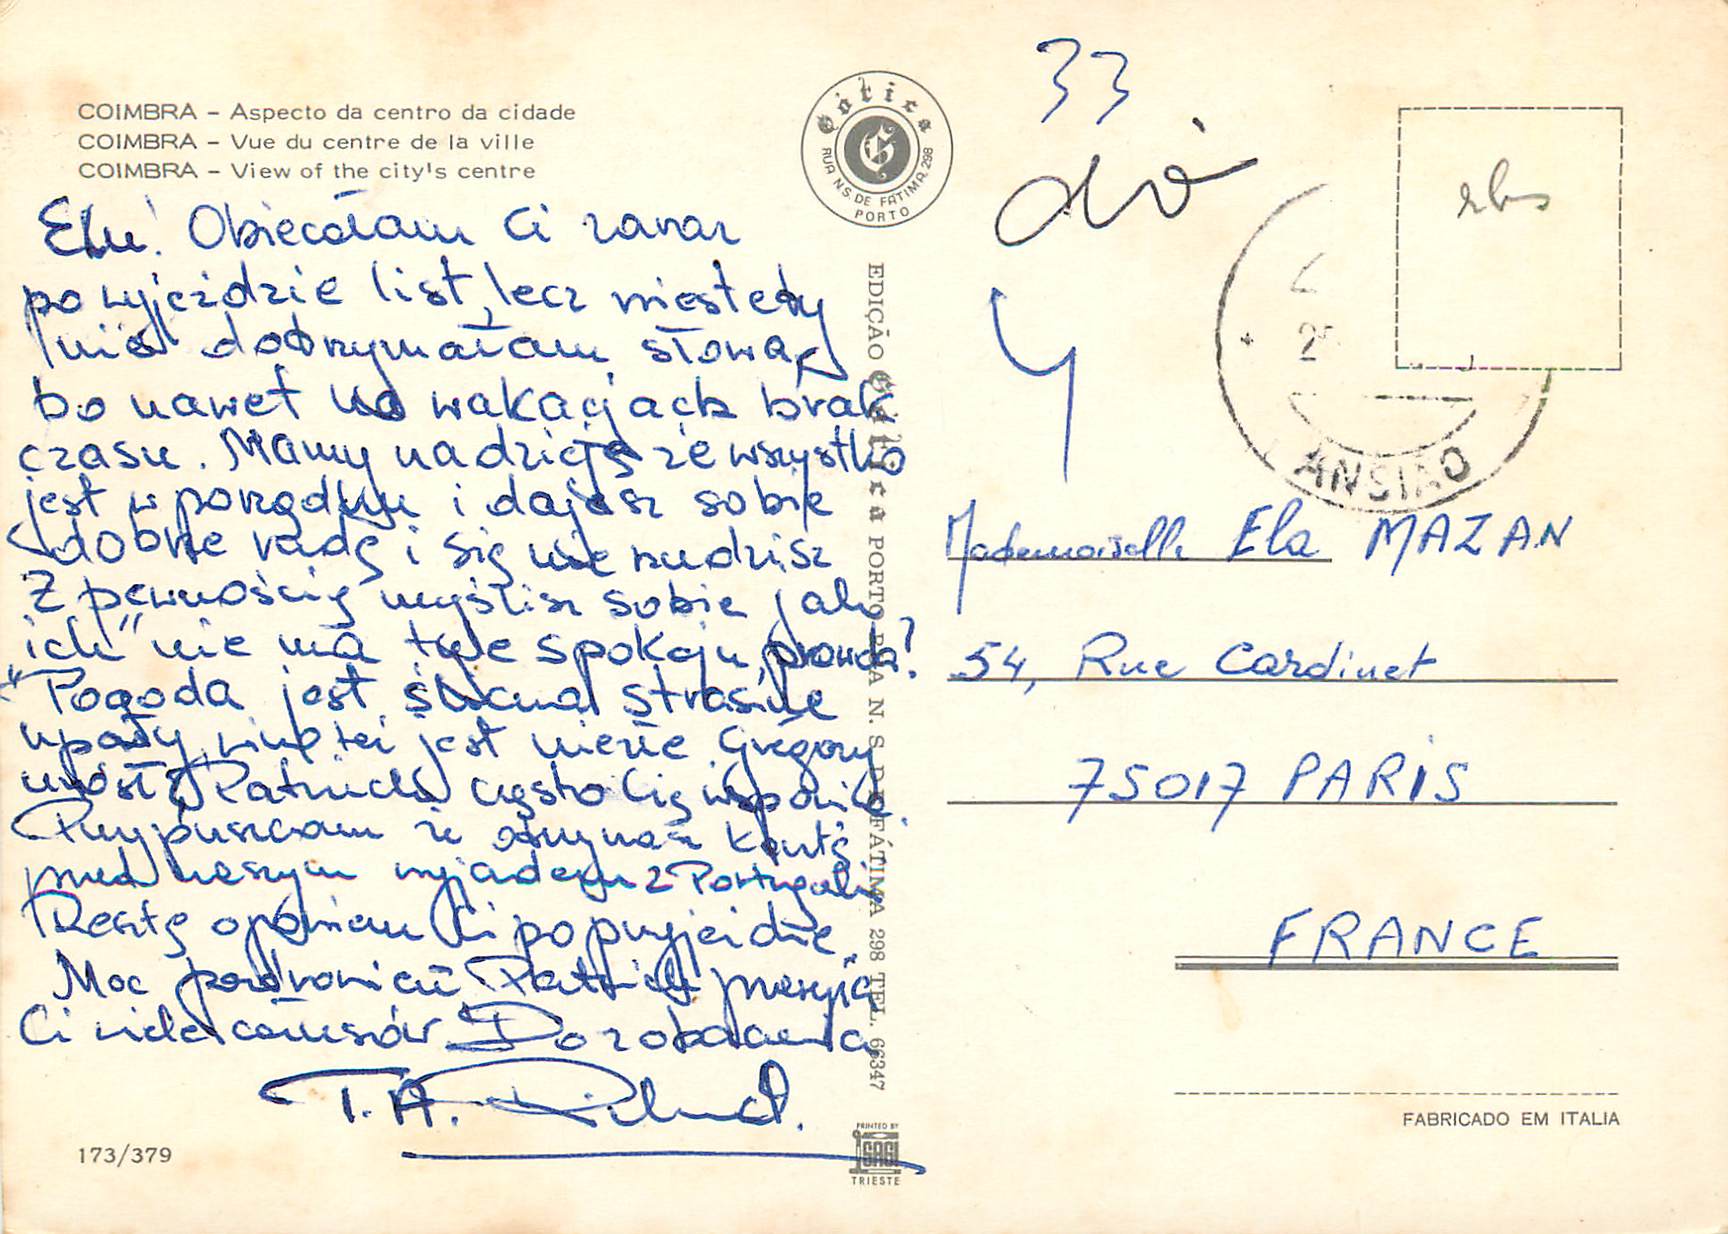 COIMBRA – Aspecto da centro da cidade
COIMBRA – Vue du centre de la ville
COIMBRA – View of the city's centre
Elu! Obiecałam Ci zaraz
po wyjeździe list, lecz niestety
nie dotrzymałam słowa,
bo nawet na wakacjach brak
czasu. Mamy nadzieję że wszystko
jest w porządku i dajesz sobie
dobrze radę i się nie nudzisz
Z pewnością myślisz sobie jak
ich" nie ma tyle spokoju, prawda?
Pogoda jest straszne
upały, jest nieźle Grégory
urósł, Patrick często Cię wspomina.
Przypuszczam że otrzymasz kartę
przed naszym wyjazdem z Portugalii
Resztę opowiem Ci po przyjeździe
Moc pozdrowień Patrick przesyła
Ci wiele całusów Do zobaczenia
T. A.
173/379
Gótica
G
RUA N.S. DE FÁTIMA, 298
PORTO
EDIÇÃO Gótica PORTO RUA N. S. DE FÁTIMA 298 TEL. 66347
PRINTED BY
SAGI
TRIESTE
33
ANSIÃO
Mademoiselle Ela MAZAN
54, Rue Cardinet
75017 PARIS
FRANCE
FABRICADO EM ITALIA